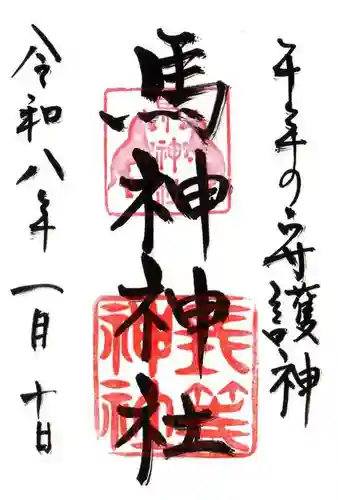 午年の守護神
馬神神社
令和八年一月十日
長等神社